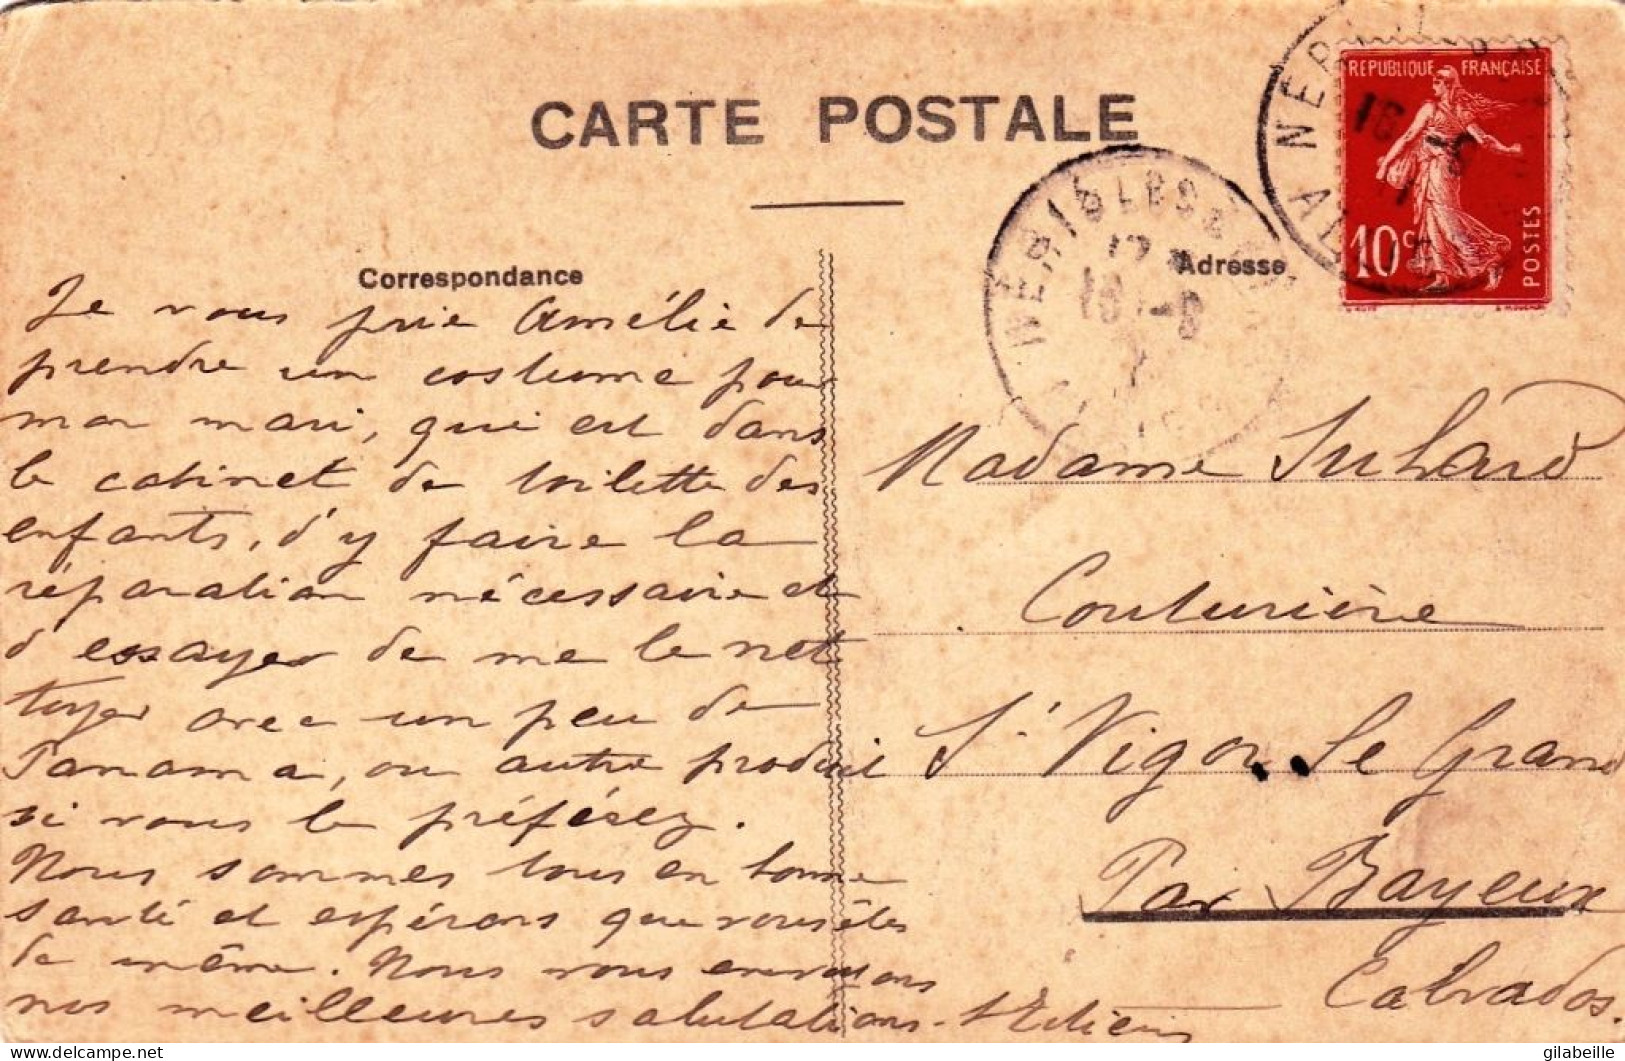 CARTE POSTALE
Correspondance
Adresse
REPUBLIQUE FRANÇAISE
10 c
POSTES
NERIS LES
ALLIER
Je vous prie Amélie de
prendre un costume pour
mon mari, qui est dans
le cabinet de toilette des
enfants, d'y faire la
réparation nécessaire et
d'essayer de me le net
toyer avec un peu de
Panama, ou autre produit
si vous le préférez.
Nous sommes tous en bonne
santé et espérons que vous êtes
de même. Nous vous envoyons
nos meilleures salutations.
Madame Suhard
Couturière
St Vigor. Le Grand
Par Bayeux
Calvados.
delcampe.net
gilabeille